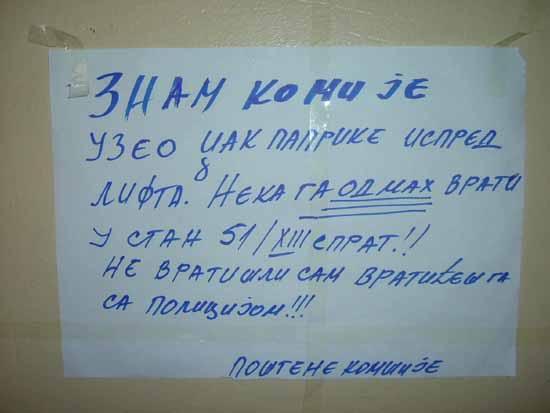 ЗНАМ КО МИ ЈЕ
УЗЕО ЏАК ПАПРИКЕ ИСПРЕД
ЛИФТА. НЕКА ГА ОДМАХ ВРАТИ
У СТАН 51/XIII СПРАТ!!
НЕ ВРАТИШ ЛИ САМ ВРАТИЋЕШ ГА
СА ПОЛИЦИЈОМ!!!
ПОШТЕНЕ КОМШИЈЕ